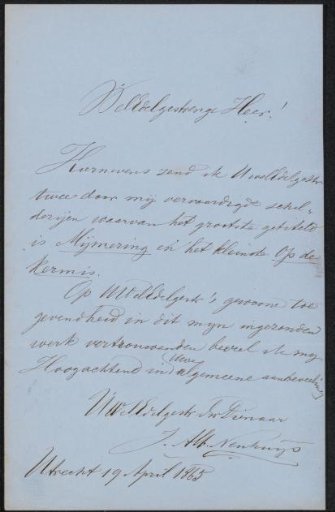 WelEdelgestrenge Heer!
Hiernevens zend ik UwelEdelgestr
twee door mij vervaardigde schil-
derijen waarvan het grootste getiteld
is Mijmering en het kleinste Op de
Kermis.
Op UWelEdelgestr's gewone toe
gevendheid in dit mijn ingezonden
werk vertrouwende beveel ik mij
Hoogachtend in Uwe algemeene aanbeveling
UWelEdelgestr Dw Dienaar
J. Alb. Neuhuys
Utrecht 19 April 1865